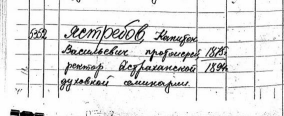 5352 Ястребов Капитон
Васильевич протоиерей 1875
ректор Астраханской 1894
духовной семинарии.